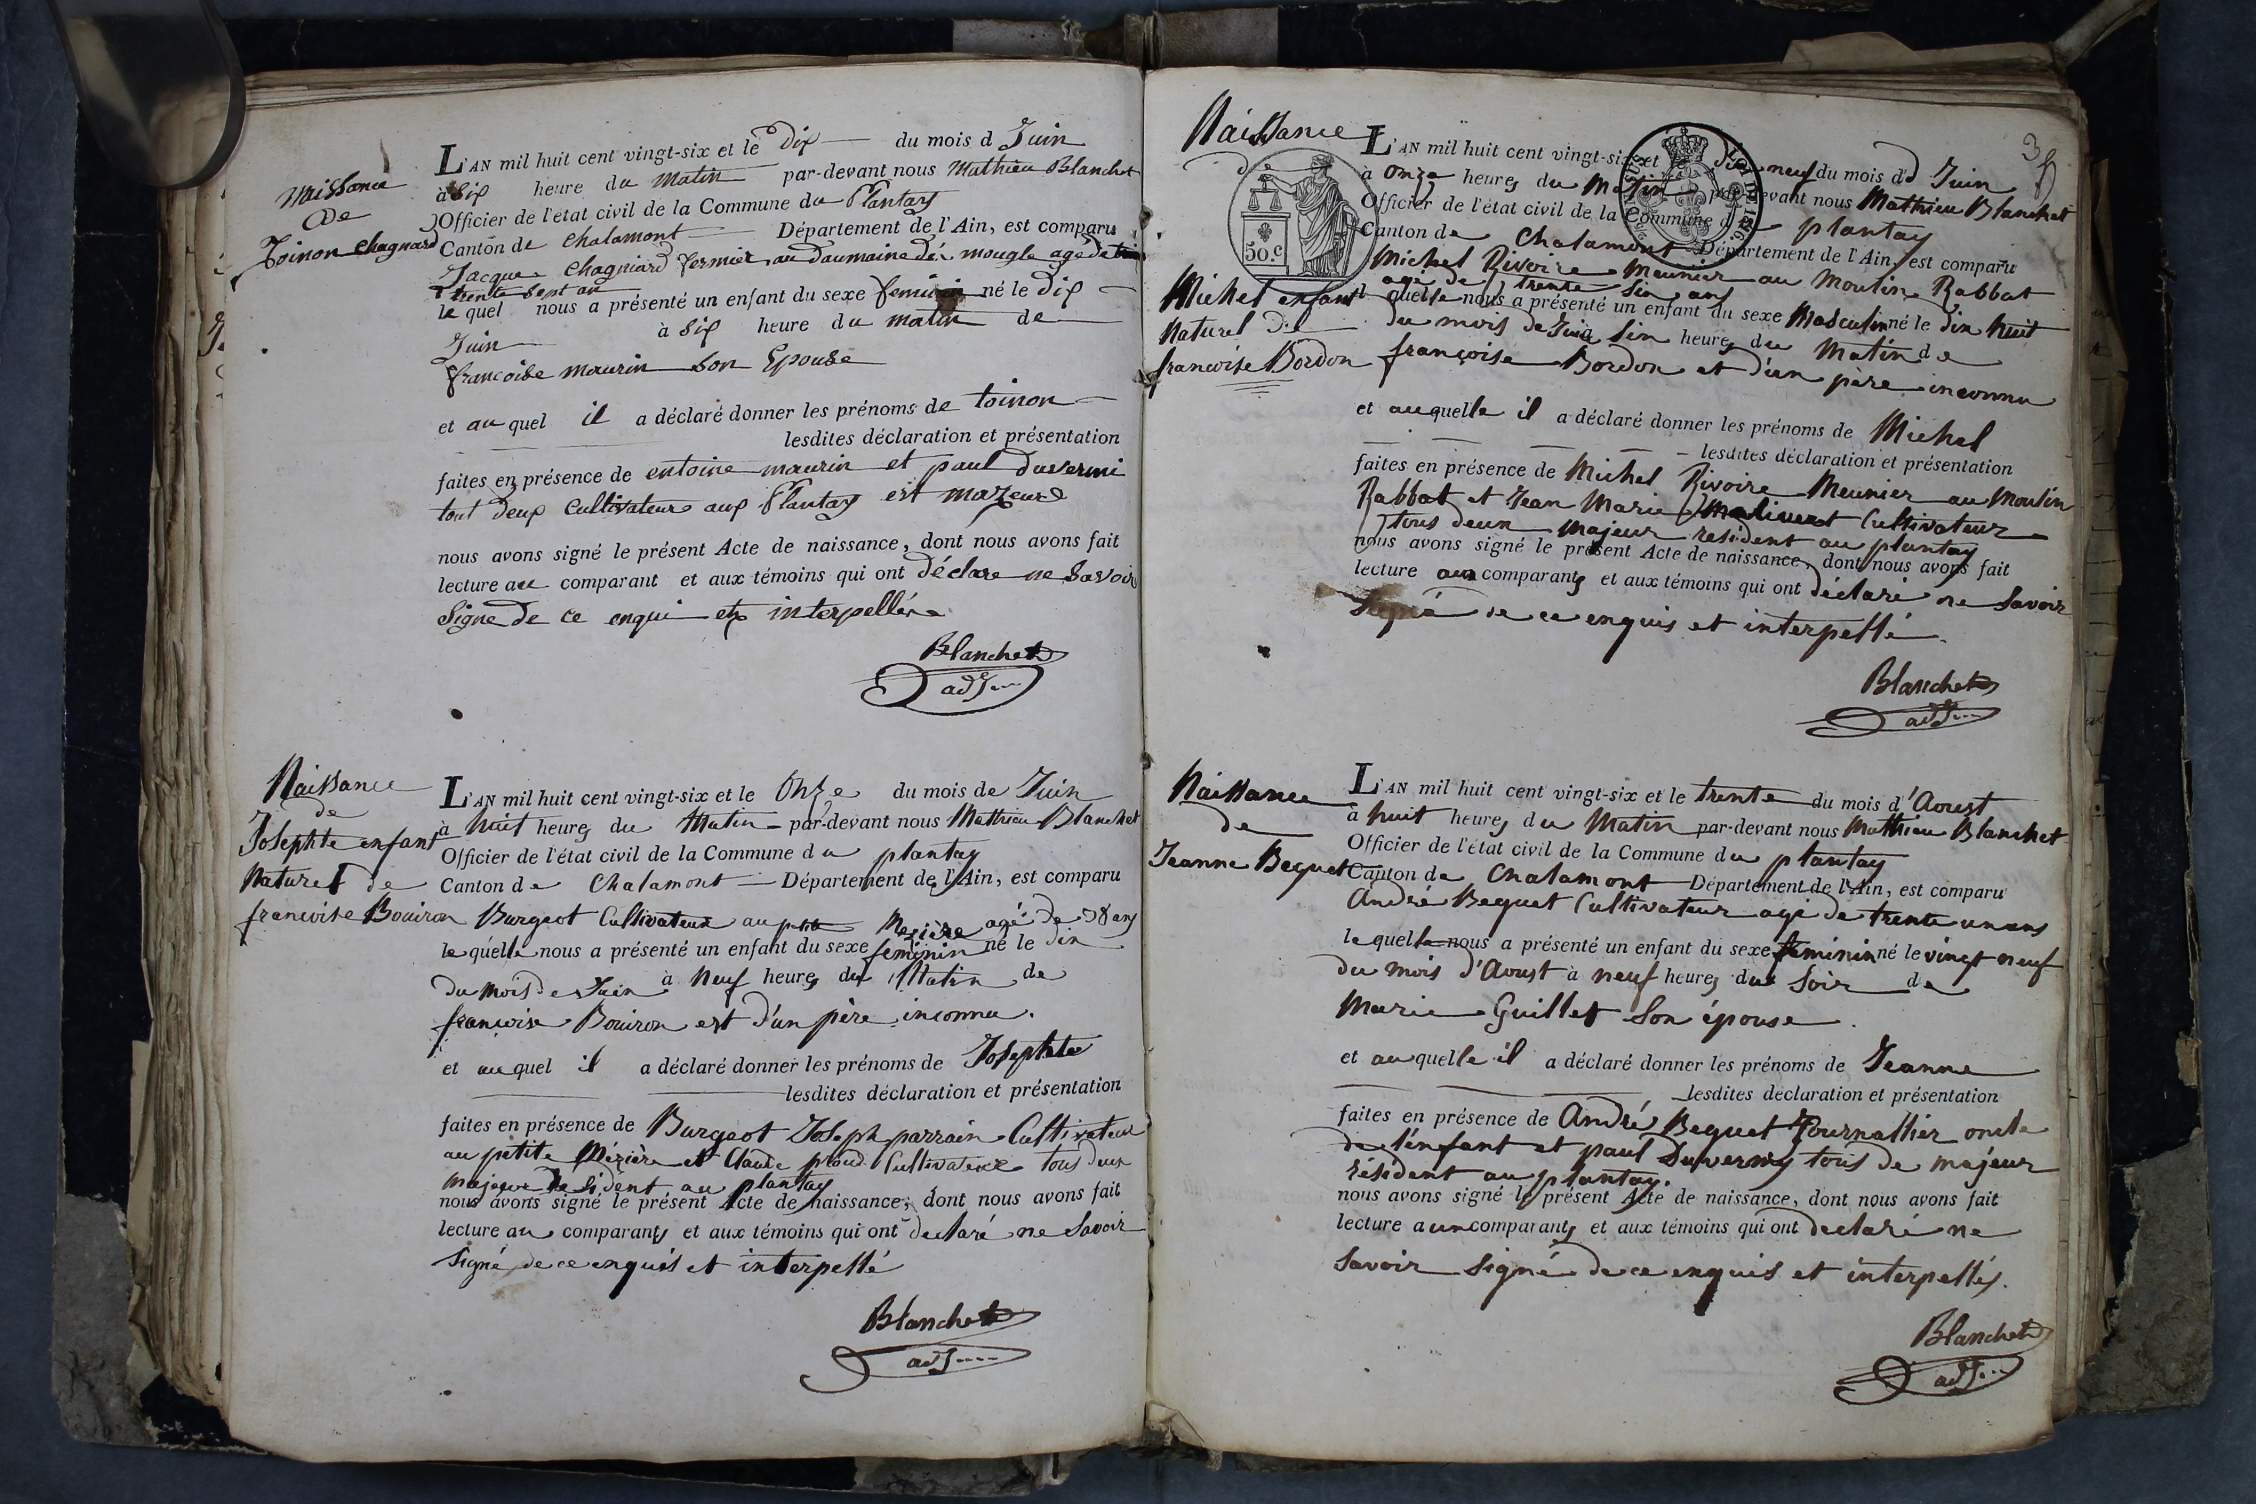 Naissance
de
Toinon Chagniard
L'AN mil huit cent vingt-six et le Dix du mois d Juin
à Six heure du Matin par-devant nous Mathieu Blanchet
Officier de l'état civil de la Commune du Plantay
Canton de Chalamont Département de l'Ain, est comparu
Jacque Chagniard fermier au daumaine des mougle agé de
trente Sept an
le quel nous a présenté un enfant du sexe feminin né le Dix
Juin à Six heure du matin de
françoise maurin Son Epouse
et au quel il a déclaré donner les prénoms de toinon
lesdites déclaration et présentation
faites en présence de entoine maurin et paul duvermi
tout deux Cultivateur aux Plantay est mazeure
nous avons signé le présent Acte de naissance, dont nous avons fait
lecture au comparant et aux témoins qui ont déclare ne Savoir
Signe de ce enqui et interpellé
Blanchet
adj
Naissance
de
Josephte enfant
Naturel de
francoise Bouiron
L'AN mil huit cent vingt-six et le Onze du mois de Juin
à huit heures du Matin par-devant nous Mathieu Blanchet
Officier de l'état civil de la Commune du plantay
Canton de Chalamont Département de l'Ain, est comparu
Burgeot Cultivateur au petit Mezière agé de 38 ans
le quelle nous a présenté un enfant du sexe feminin né le dix
du mois de Juin à Neuf heures du Matin de
françoise Bouiron est d'un père inconnu.
et au quel il a déclaré donner les prénoms de Josephte
lesdites déclaration et présentation
faites en présence de Burgeot Joseph parrain Cultivateur
au petite Mézière et Claude Cultivateur tous deux
majeur Resident au plantay
nous avons signé le présent Acte de naissance, dont nous avons fait
lecture au comparants et aux témoins qui ont declaré ne Savoir
Signé de ce enquis et interpellé
Blanchet
adj
35
Naissance
de
Michel enfant
Naturel De
francoise Bordon
50.c
L'AN mil huit cent vingt-six et le dix neuf du mois d Juin
à onze heures du Matin par-devant nous Mathieu Blanchet
Officier de l'état civil de la Commune du plantay
Canton de Chalamont Département de l'Ain, est comparu
Michel Rivoire Meunier au Moulin Rabbat
agé de trente Six ans
l quelle nous a présenté un enfant du sexe Masculin né le dix huit
du mois de Juin à Six heures du Matin de
françoise Bordon et d'un père inconnu
et au quelle il a déclaré donner les prénoms de Michel
lesdites déclaration et présentation
faites en présence de Michel Rivoire Meunier au Moulin
Rabbat et Jean Marie Malivert Cultivateur
tous deux majeur resident au plantay
nous avons signé le présent Acte de naissance, dont nous avons fait
lecture aux comparants et aux témoins qui ont déclaré ne Savoir
Signé de ce enquis et interpellé
Blanchet
adj
Naissance
de
Jeanne Beguet
L'AN mil huit cent vingt-six et le trente du mois d'Aoust
à huit heures du Matin par-devant nous Mathieu Blanchet
Officier de l'état civil de la Commune du plantay
Canton de Chalamont Département de l'Ain, est comparu
André Beguet Cultivateur agé de trente un ans
le quelle nous a présenté un enfant du sexe féminin né le vingt neuf
du mois d'Aoust à neuf heures du Soir de
Marie Guillet Son épouse.
et au quelle il a déclaré donner les prénoms de Jeanne
lesdites déclaration et présentation
faites en présence de André Beguet Journallier oncle
de l'enfant et paul Duverny tous de majeur
résident au plantay.
nous avons signé le présent Acte de naissance, dont nous avons fait
lecture aux comparants et aux témoins qui ont declaré ne
Savoir Signé de ce enquis et interpellés.
Blanchet
adj